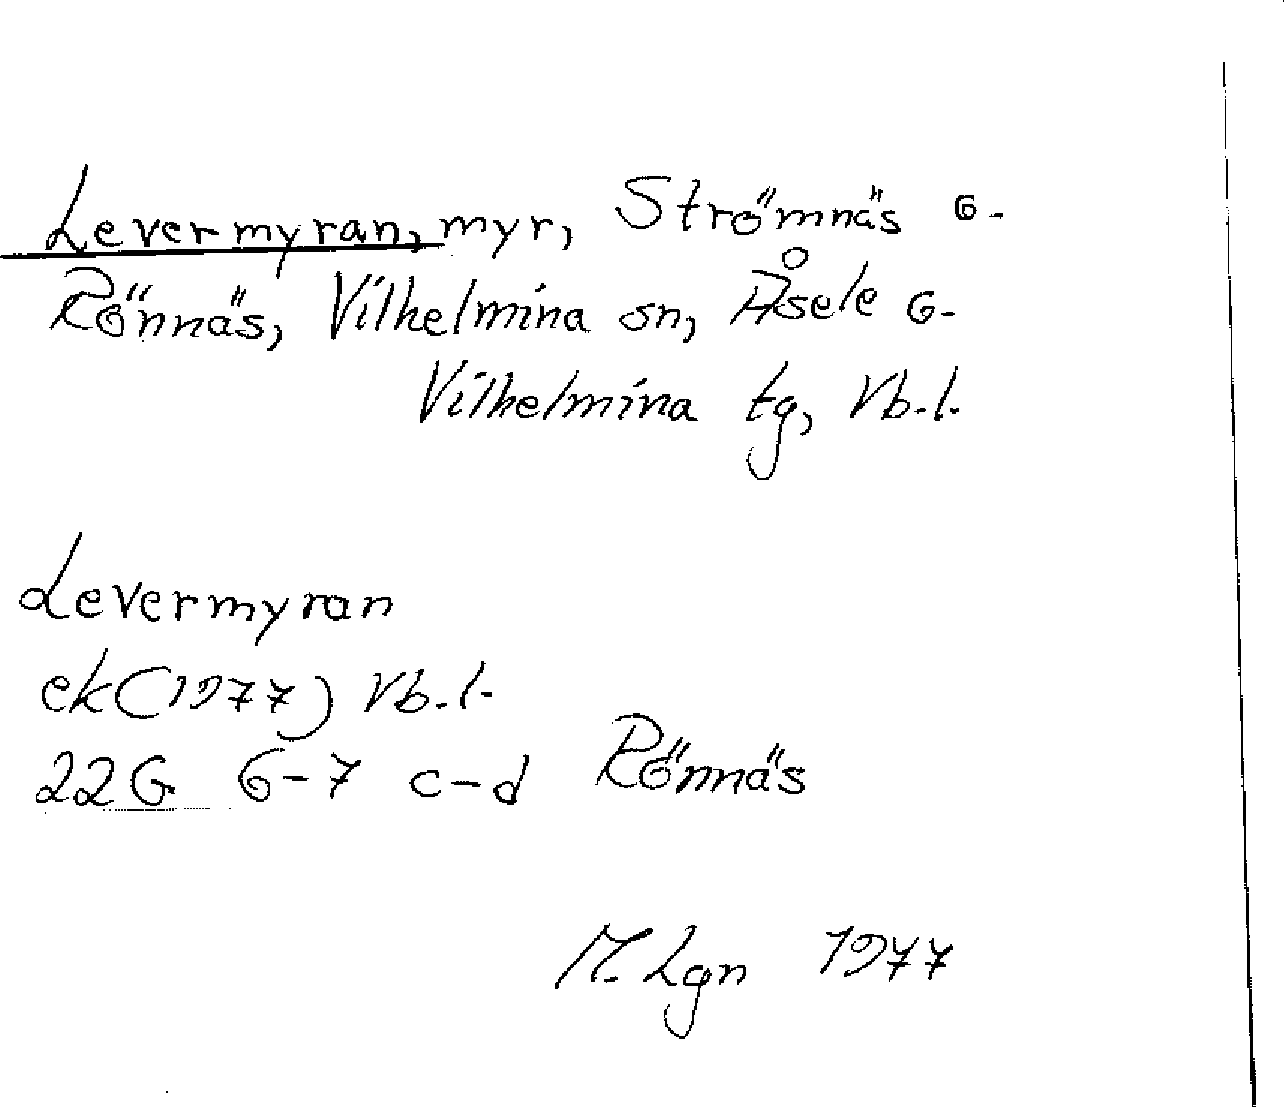 Levermyran, myr, Strömnäs o.
Rönnäs, Vilhelmina sn, Åsele o.
Vilhelmina tg, Vb.l.
Levermyran
ek(1977) Vb.l.
22G 6-7 c-d Rönnäs
M. Lgn 1977